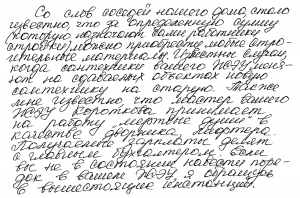 Со слов соседей нашего дома, стало
известно, что за определенную сумму
(которую назначают сами работники
стройки) можно приобрести любые строи-
тельные материалы. Известны случаи,
когда сантехники вашего ЖЭУ меня-
ют на сдаваемых объектах новую
сантехнику на старую. Также
мне известно, что мастер вашего
ЖЭУ Короткова принимает
на работу мертвые души в
качестве дворника, маляра.
Получаемые зарплаты делят
с главным бухгалтером. Если
вы не в состоянии навести поря-
док в вашем ЖЭУ, я обращусь
в вышестоящие инстанции.